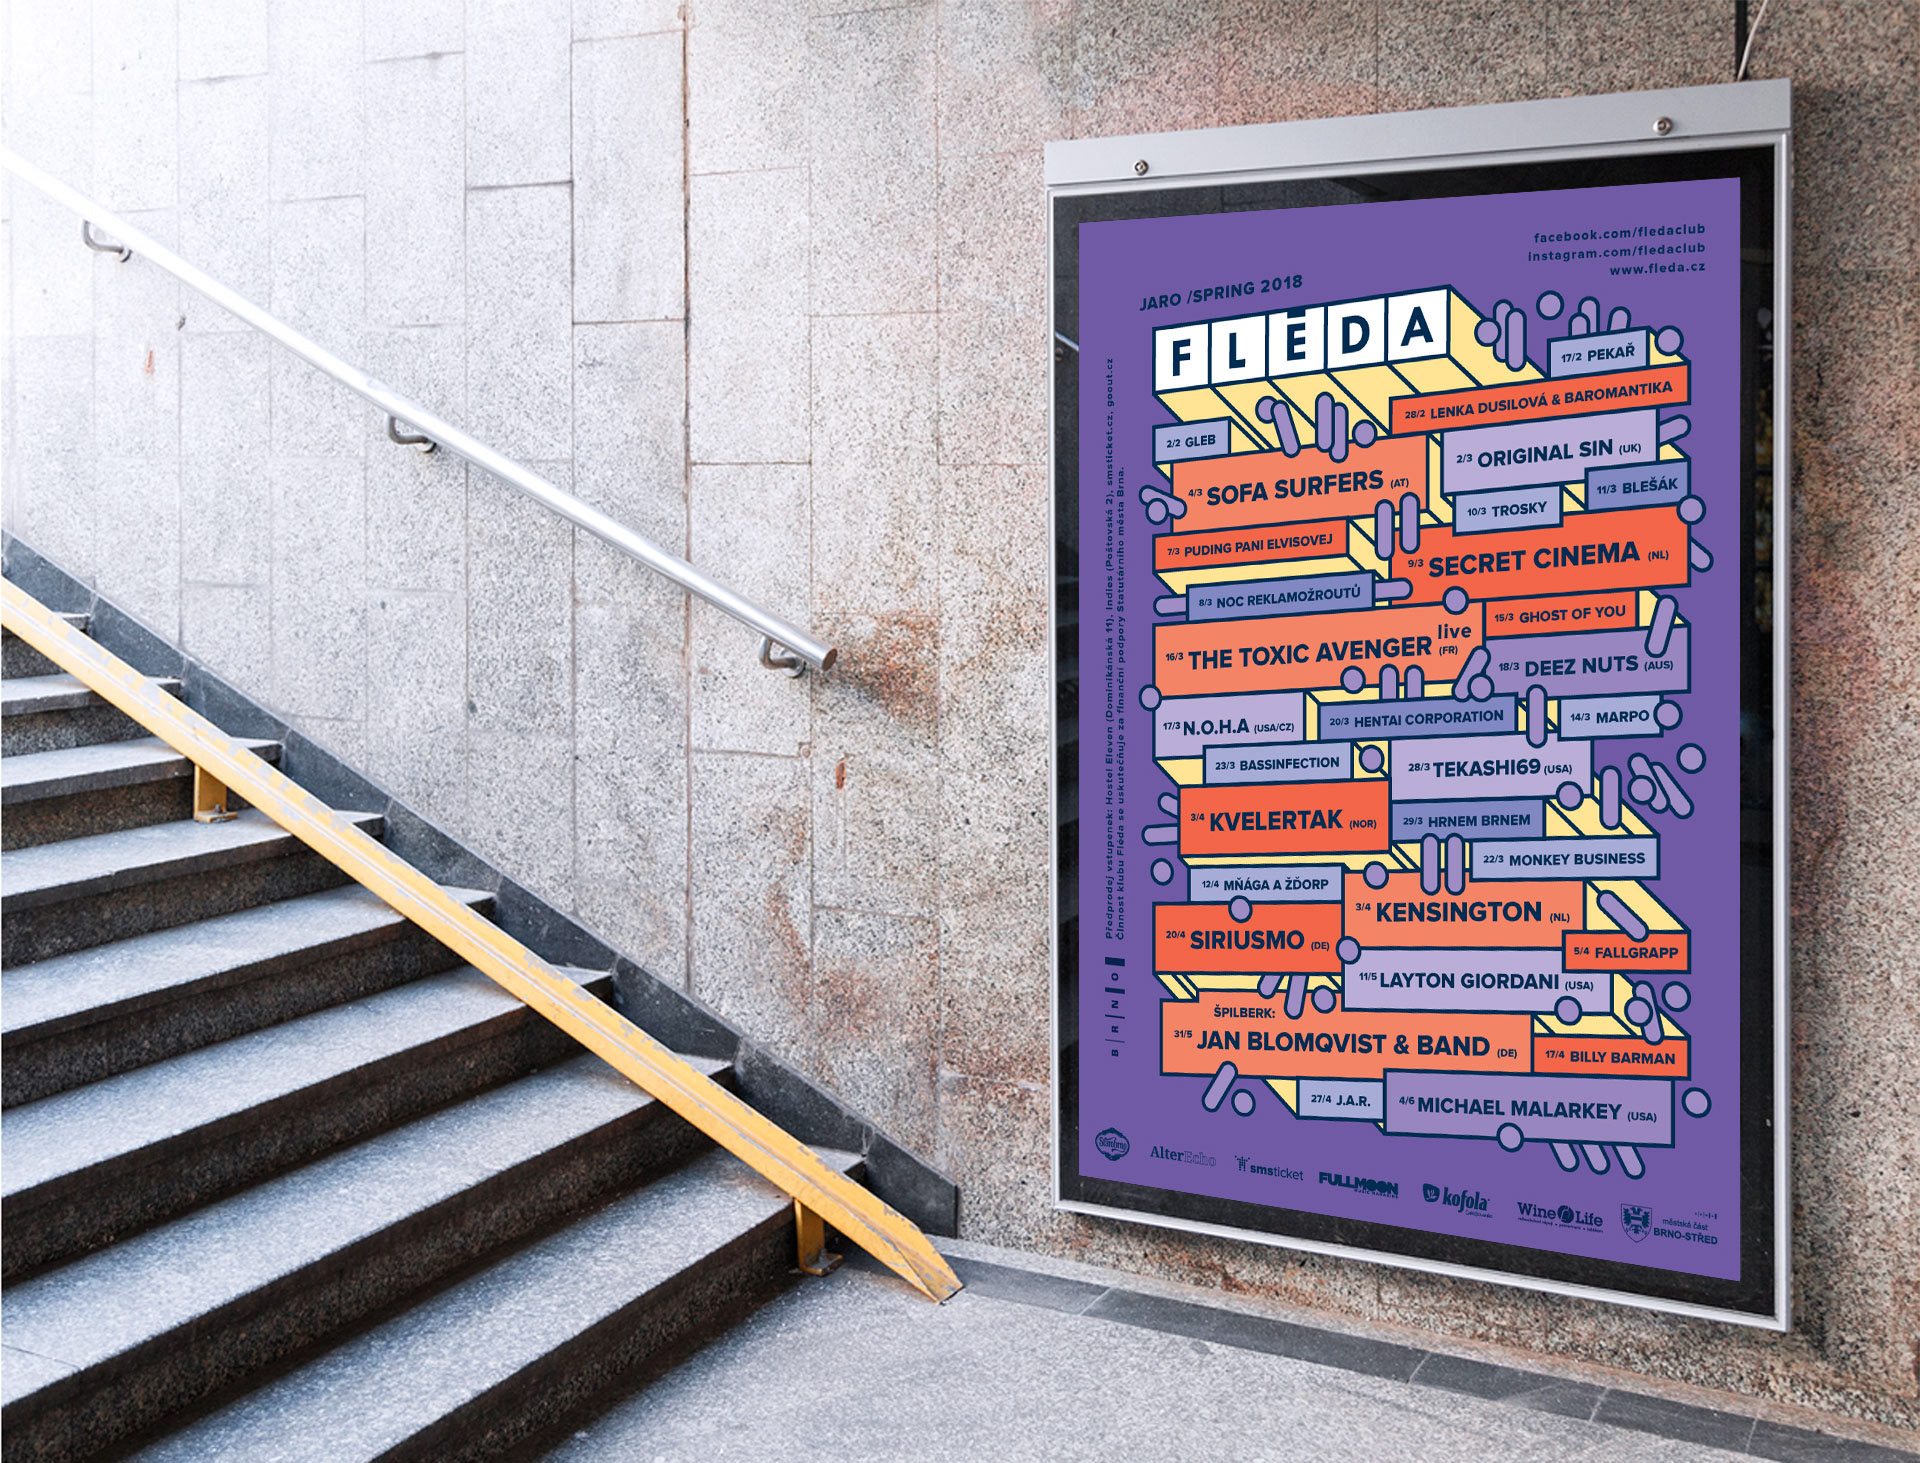 facebook.com/fledaclub
instagram.com/fledaclub
www.fleda.cz
JARO /SPRING 2018
FLĒDA
17/2 PEKAŘ
28/2 LENKA DUSILOVÁ & BAROMANTIKA
2/2 GLEB
2/3 ORIGINAL SIN (UK)
4/3 SOFA SURFERS (AT)
11/3 BLEŠÁK
10/3 TROSKY
7/3 PUDING PANI ELVISOVEJ
9/3 SECRET CINEMA (NL)
8/3 NOC REKLAMOŽROUTŮ
15/3 GHOST OF YOU
16/3 THE TOXIC AVENGER live (FR)
18/3 DEEZ NUTS (AUS)
17/3 N.O.H.A (USA/CZ)
20/3 HENTAI CORPORATION
14/3 MARPO
23/3 BASSINFECTION
28/3 TEKASHI69 (USA)
3/4 KVELERTAK (NOR)
29/3 HRNEM BRNEM
22/3 MONKEY BUSINESS
12/4 MŇÁGA A ŽĎORP
3/4 KENSINGTON (NL)
20/4 SIRIUSMO (DE)
5/4 FALLGRAPP
11/5 LAYTON GIORDANI (USA)
ŠPILBERK:
31/5 JAN BLOMQVIST & BAND (DE)
17/4 BILLY BARMAN
27/4 J.A.R.
4/6 MICHAEL MALARKEY (USA)
Předprodej vstupenek: Hostel Eleven (Dominikánská 11), Indies (Poštovská 2), smsticket.cz, goout.cz
Činnost klubu Fléda se uskutečňuje za finanční podpory Statutárního města Brna.
B|R|N|O
Starobrno
AlterEcho
smsticket
FULLMOON
kofola
Wine Life
městská část
BRNO-STŘED